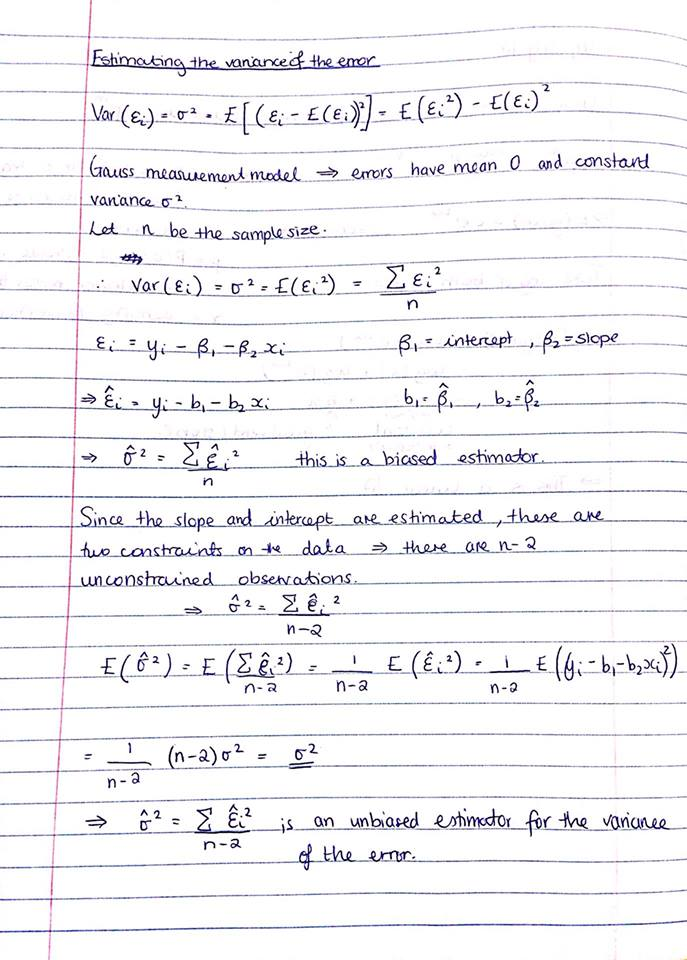 Estimating the variance of the error
Var(εi) = σ² = E[(εi - E(εi))²] = E(εi²) - E(εi)²
Gauss measurement model ⇒ errors have mean 0 and constant
variance σ².
Let n be the sample size.
∴ Var(εi) = σ² = E(εi²) = Σ εi² / n
εi = yi - β₁ - β₂xi β₁ = intercept, β₂ = slope
⇒ ε̂i = yi - b₁ - b₂xi b₁ = β̂₁, b₂ = β̂₂
⇒ σ̂² = Σ ε̂i² / n this is a biased estimator.
Since the slope and intercept are estimated, these are
two constraints on the data ⇒ there are n-2
unconstrained observations.
⇒ σ̂² = Σ ê i² / n-2
E(σ̂²) = E(Σ êi² / n-2) = 1/n-2 E(ε̂i²) = 1/n-2 E((yi - b₁ - b₂xi)²)
= 1/n-2 (n-2)σ² = σ²
⇒ σ̂² = Σ ε̂i² / n-2 is an unbiased estimator for the variance
of the error.